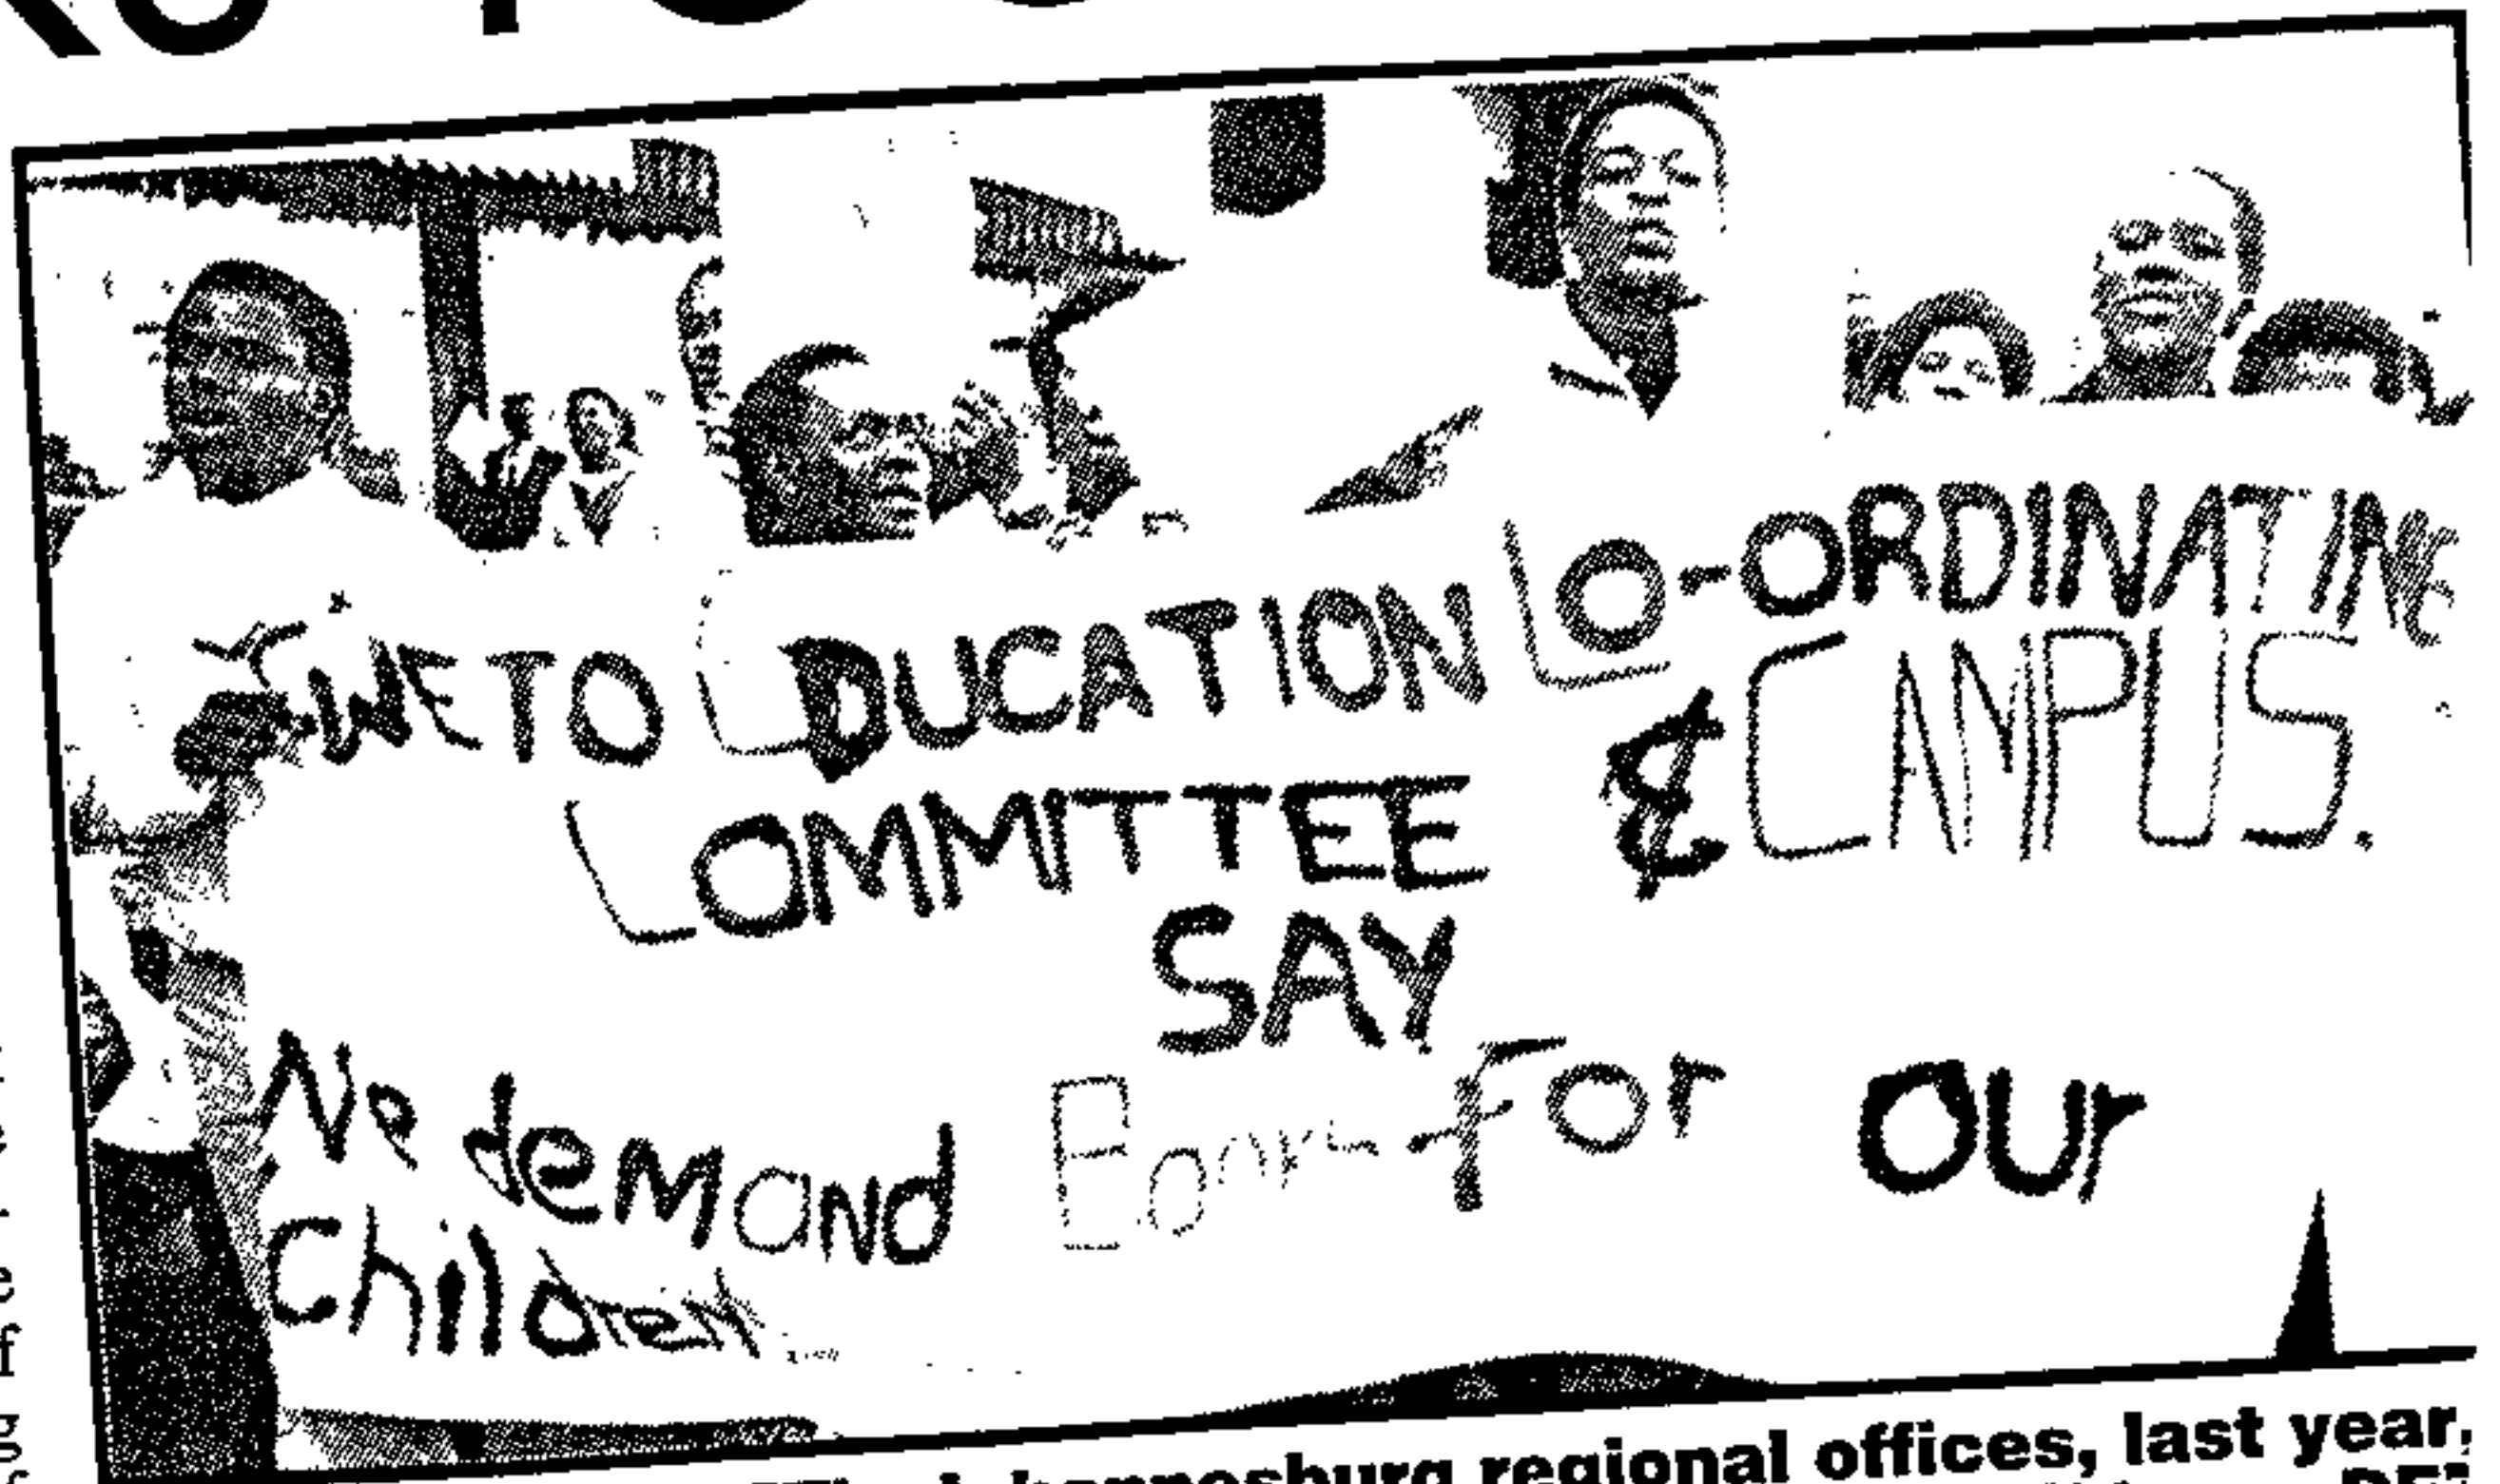 WETO EDUCATION CO-ORDINATING
COMMITTEE & CAMPUS.
SAY
We demand For our
Children
regional offices, last year,